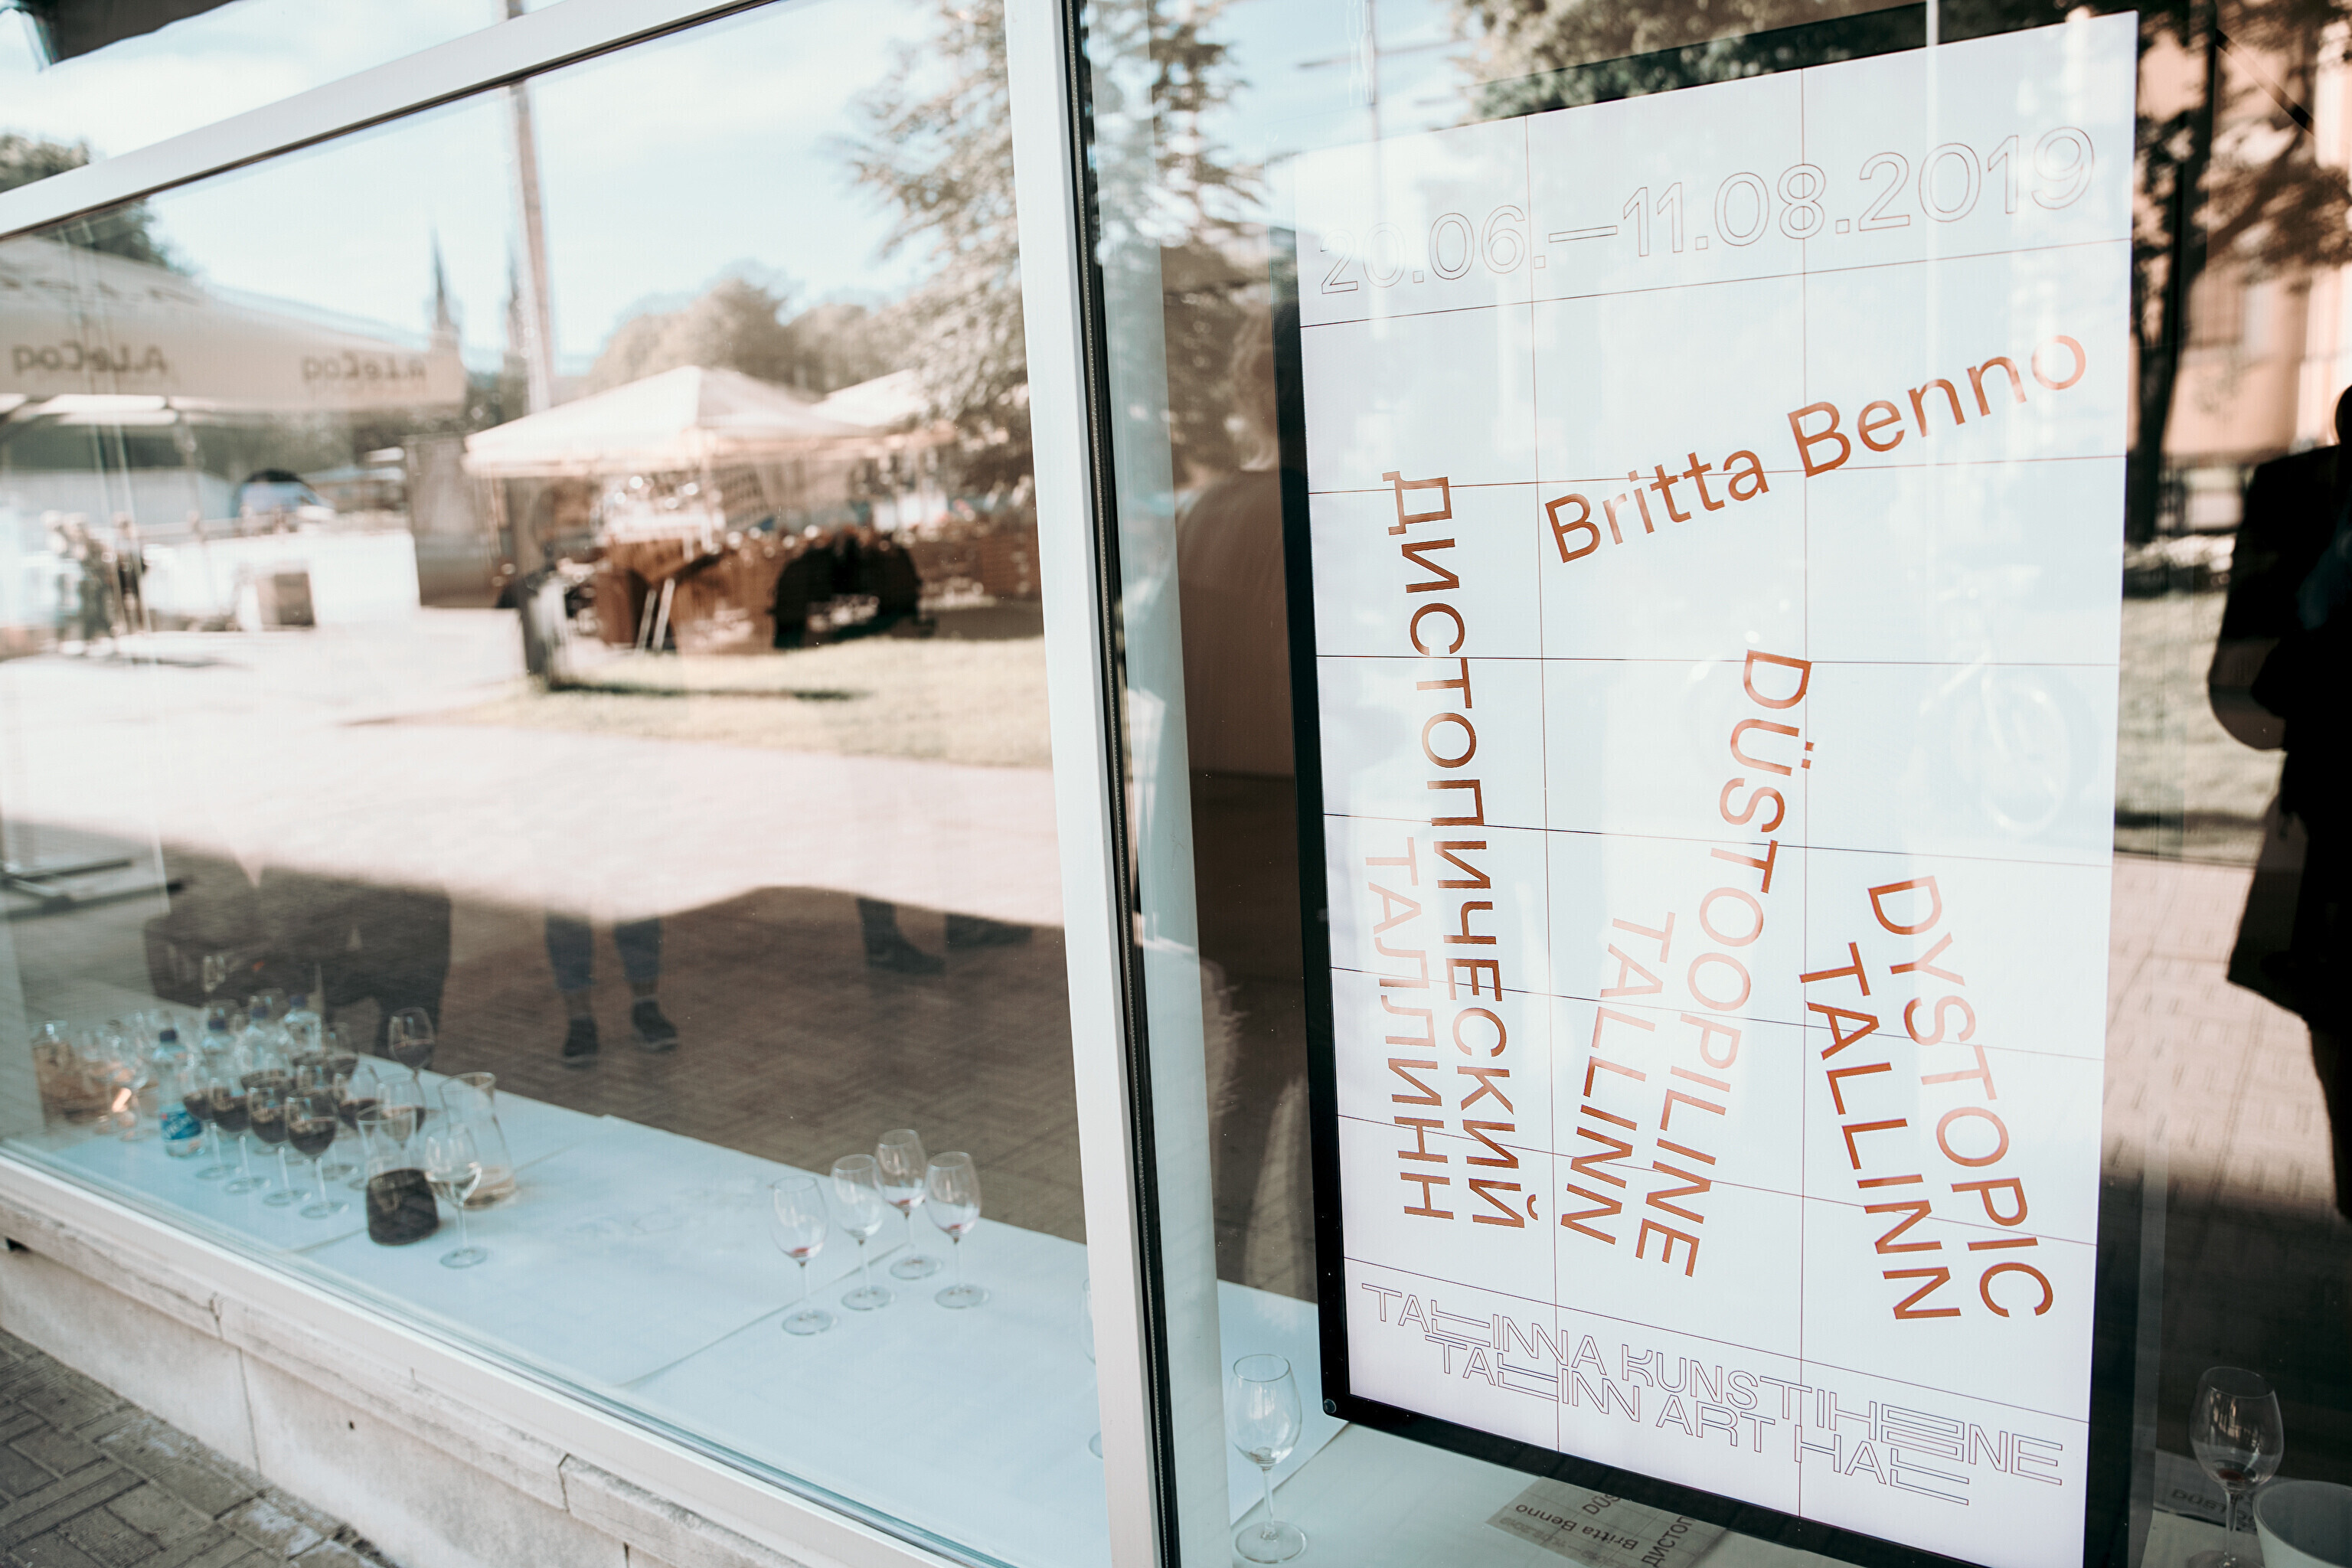 20.06.—11.08.2019
Britta Benno
ДИСТОПИЧЕСКИЙ
ТАЛЛИНН
DÜSTOOPILINE
TALLINN
DYSTOPIC
TALLINN
TALLINNA KUNSTIHOONE
TALLINN ART HALL
A.LeCoq
A.LeCoq
Britta Benno